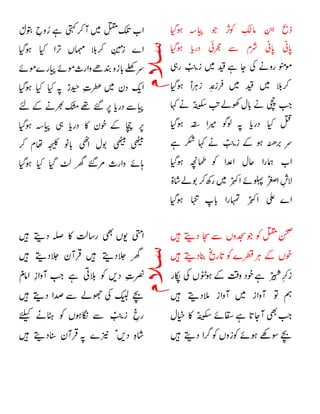 سلام
ذبح جو پیاسہ ابن مالک کوثر ہوگیا
پانی پانی شرم سے دریا ہوگیا
مومنو رونے کی جا ہے قید میں زینبؑ رہی
کربلا میں قید میں فرزندِ زہراؑ ہوگیا
جب چچی نے بال کھولے تب سکینہؑ نے کہا
قتل کیا دریا پہ لوگو میرا سقہ ہوگیا
سر برہنہ ہو کے زینبؑ نے کہا شکر ہے
اب ہمارا حال اعدا کو طمانچہ ہوگیا
لاشِ اصغرؑ پہلوئے اکبرؑ میں رکھ کر بولے شاہؑ
اے علی اکبرؑ تمہارا باپ تنہا ہوگیا
اب تلک مقتل میں آکر یہ کہتی ہے روحِ بتولؑ
اے زمینِ کربلا مہماں ترا کیا ہوگیا
سر کھلے بازو بندھے وارث موئے پیارے موئے
ایک دن میں عترتِ حیدرؑ پہ کیا کیا ہوگیا
پیاسے دریا پر گئے تھے مشک بھرنے کے لئے
پر چچا کے خون کا دریا ہی پیاسہ ہوگیا
بیٹھی بیٹھی بول اٹھی بانو کلیجہ تھام کر
ہائے وارث مرگئے گھر لٹ گیا کیا ہوگیا
سلام
صحنِ مقتل کو جو سجدوں سے سجا دیتے ہیں
خوں کے ہر قطرے کو تاریخ بنادیتے ہیں
ذکرِ شبیرؑ ہے خود وقت کے ہونٹوں کی پکار
ہم تو آواز میں آواز ملادیتے ہیں
جب بھی آجاتا ہے سقائے سکینہؑ کا خیال
بچے سوکھے ہوئے کوزوں کو گرا دیتے ہیں
امتی یوں بھی رسالت کا صلہ دیتے ہیں
گھر جلادیتے ہیں قرآن جلادیتے ہیں
نصرتِ دیں کو بلاتی ہے جب آوازِ امامؑ
بچے لبیک کی جھولے سے صدا دیتے ہیں
رخِ زینبؑ سے نگاہوں کو ہٹانے کیلئے
شاہِ دیںؑ نیزے پہ قرآن سنادیتے ہیں